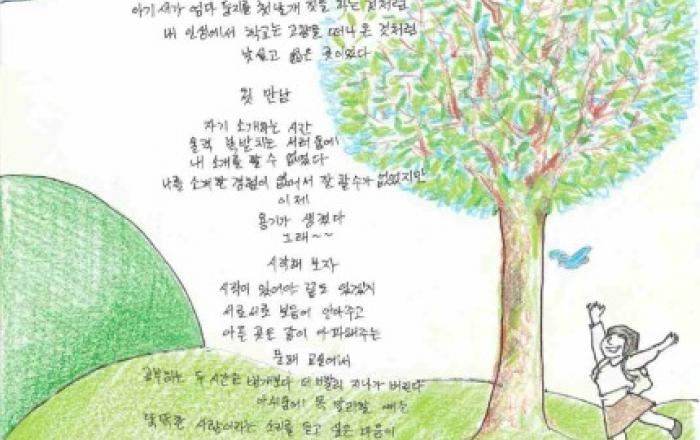 아기 새가 엄마 둥지를 첫 날개 짓을 하는 것처럼
내 인생에서 학교는 고향을 떠나온 것처럼
낯설고 곳이었다
첫 만남
자기 소개하는 시간
울컥 북받치는 서러움에
내 소개를 할 수 없었다
나를 소개한 경험이 없어서 잘 할수가 없었지만
이제
용기가 생겼다
노래~~
시작해 보자
시작이 있어야 끝도 있겠지
서로서로 보듬어 안아주고
아픈 곳은 같이 아파해주는
문해 교실에서
공부하는 두 시간은 번개보다 더 빨리 지나가 버린다
아쉬움에 목 말라할 때는
똑똑한 사람이라는 소리를 듣고 싶은 마음이